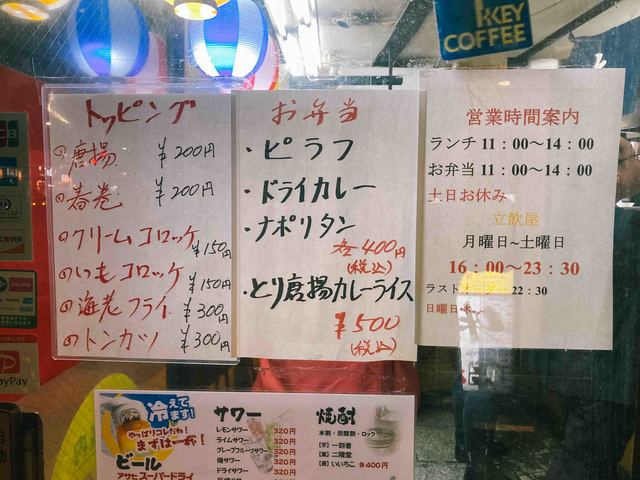 KEY
COFFEE
トッピング
唐揚 ¥200円
春巻 ¥200円
クリームコロッケ ¥150円
いもコロッケ ¥150円
海老フライ ¥300円
トンカツ ¥300円
お弁当
・ピラフ
・ドライカレー
・ナポリタン
各400円
(税込)
・とり唐揚カレーライス
¥500
(税込)
営業時間案内
ランチ 11：00〜14：00
お弁当 11：00〜14：00
土日お休み
立飲屋
月曜日~土曜日
16：00〜23：30
ラスト 22：30
日曜日
冷えてます!
やっぱりコレだね!
まずは一杯!
ビール
アサヒスーパードライ
サワー
レモンサワー 320円
ライムサワー 320円
グレープフルーツサワー 320円
梅サワー 320円
ドライサワー 320円
焼酎
水割・炭酸割・ロック
【芋】一刻者
【麦】二階堂
【麦】いいちこ 各400円
PayPay